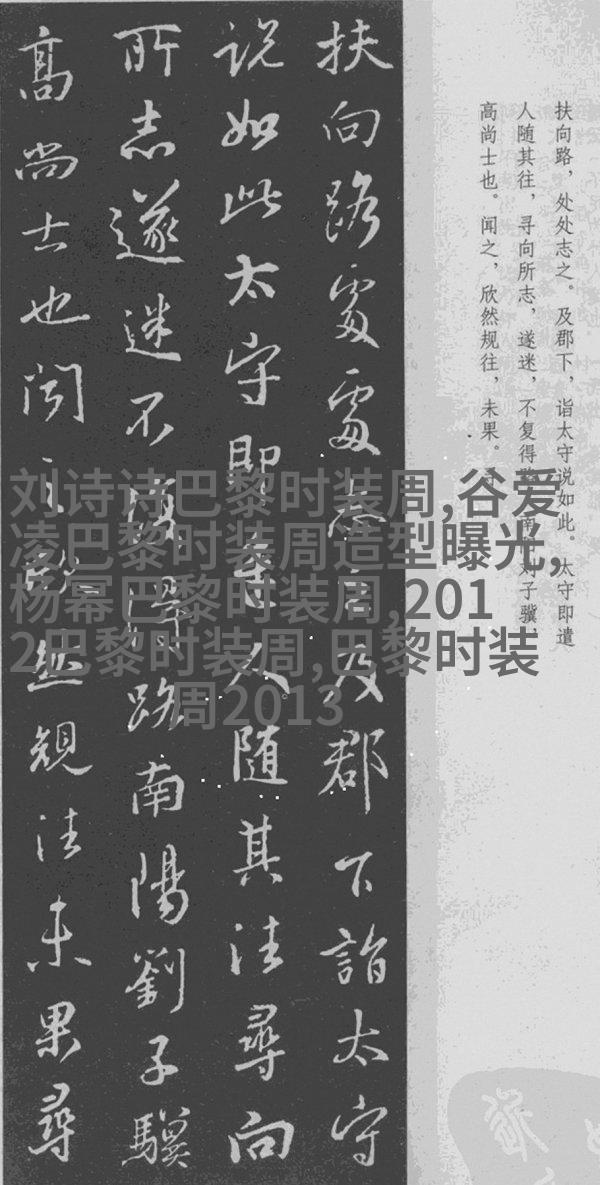 扶向路，处处志之。及郡下，诣太守说如此。太守即遣
人随其往，寻向所志，遂迷，不复得路。南阳刘子骥，
高尚士也。闻之，欣然规往，未果。
扶向路處處志之及郡下詣太守
说如此太守即遣人随其往尋向
所志遂迷不復得路南陽劉子驥
高尚士也闻之欣然規往未果尋
刘诗诗巴黎时装周,谷爱
凌巴黎时装周造型曝光,
杨幂巴黎时装周,201
2巴黎时装周,巴黎时装
周2013